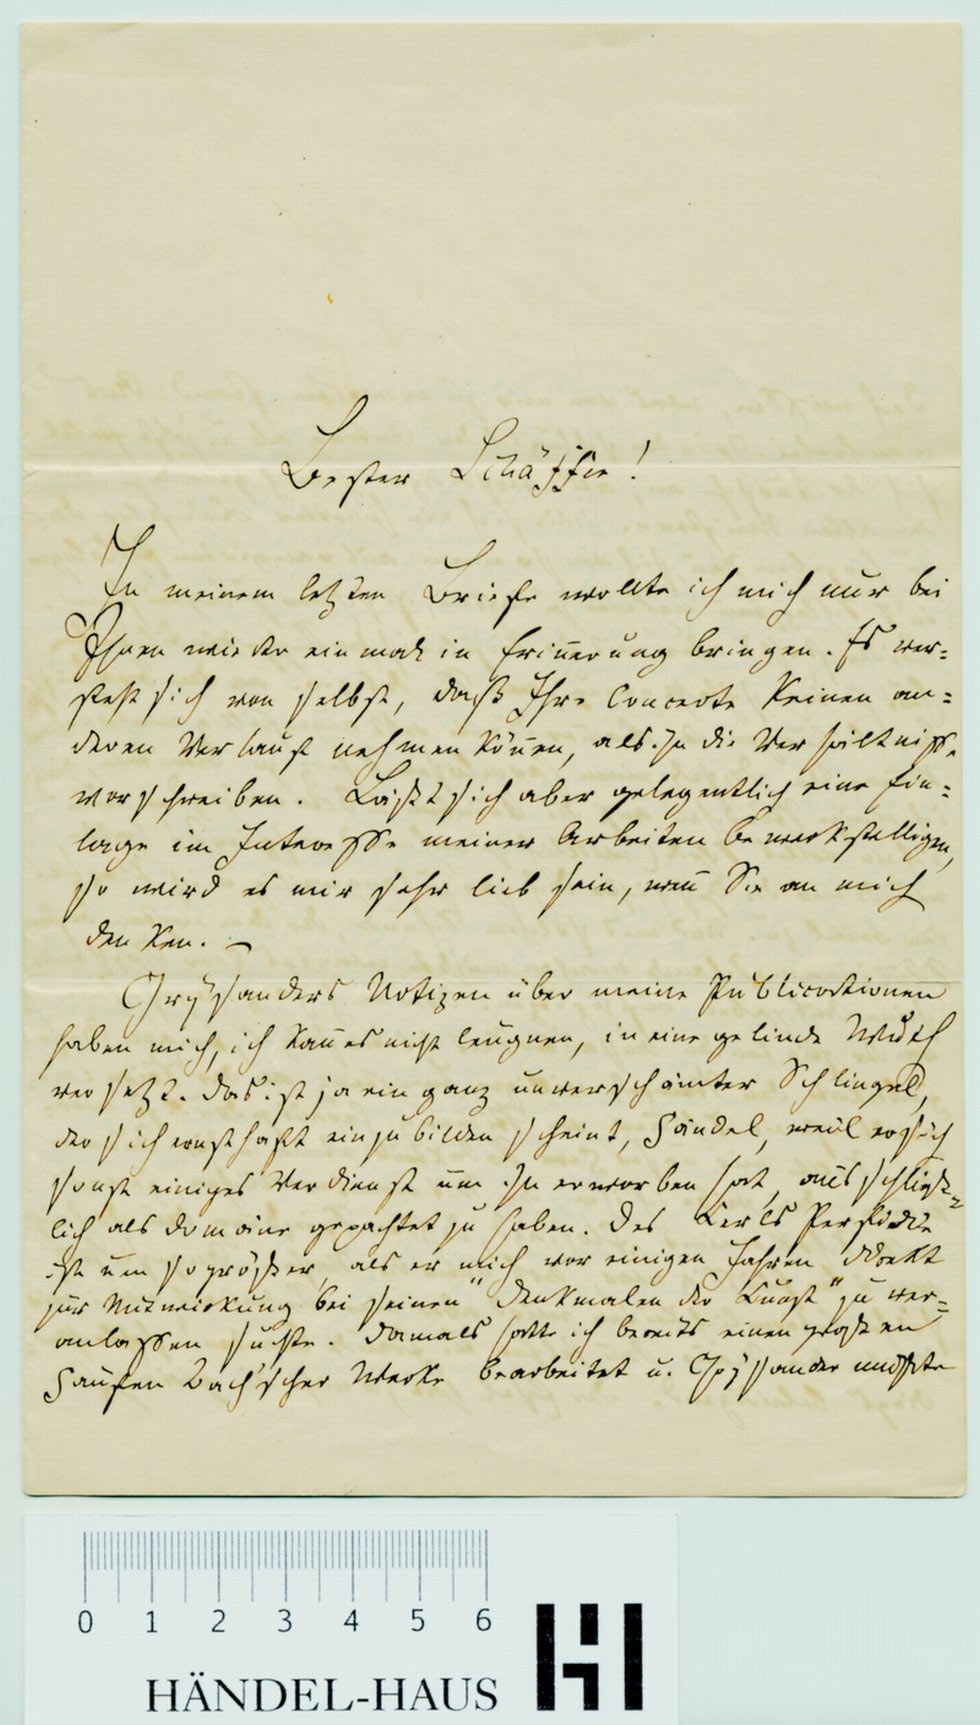 Bester Schäffer!
In meinem letzten Briefe wollte ich mich nur bei
Ihnen wieder einmal in Erinnerung bringen. Es ver=
steht sich von selbst, daß Ihre Concerte keinen an=
deren Verlauf nehmen können, als ihn die Verhältnisse
vorschreiben. Läßt sich aber gelegentlich eine Ein=
lage im Interesse meiner Arbeiten bewerkstelligen,
so wird es mir sehr lieb sein, wenn Sie an mich
denken. –
Chrysanders Notizen über meine Publicationen
haben mich, ich kann es nicht leugnen, in eine gelinde Wuth
versetzt. Das ist ja ein ganz unverschämter Schlingel,
der sich ernsthaft einzubilden scheint, Händel, weil er sich
sonst einiges Verdienst um ihn erworben hat, ausschließ=
lich als Domäne gepachtet zu haben. Des Kerls Perfidie
ist um so größer, als er mich vor einigen Jahren direkt
zur Mitwirkung bei seinen "Denkmalen der Kunst" zu ver=
anlassen suchte. Damals hatte ich bereits einen großen
Haufen Bach'scher Werke bearbeitet u. Chrysander mußte
0 1 2 3 4 5 6
HÄNDEL-HAUS